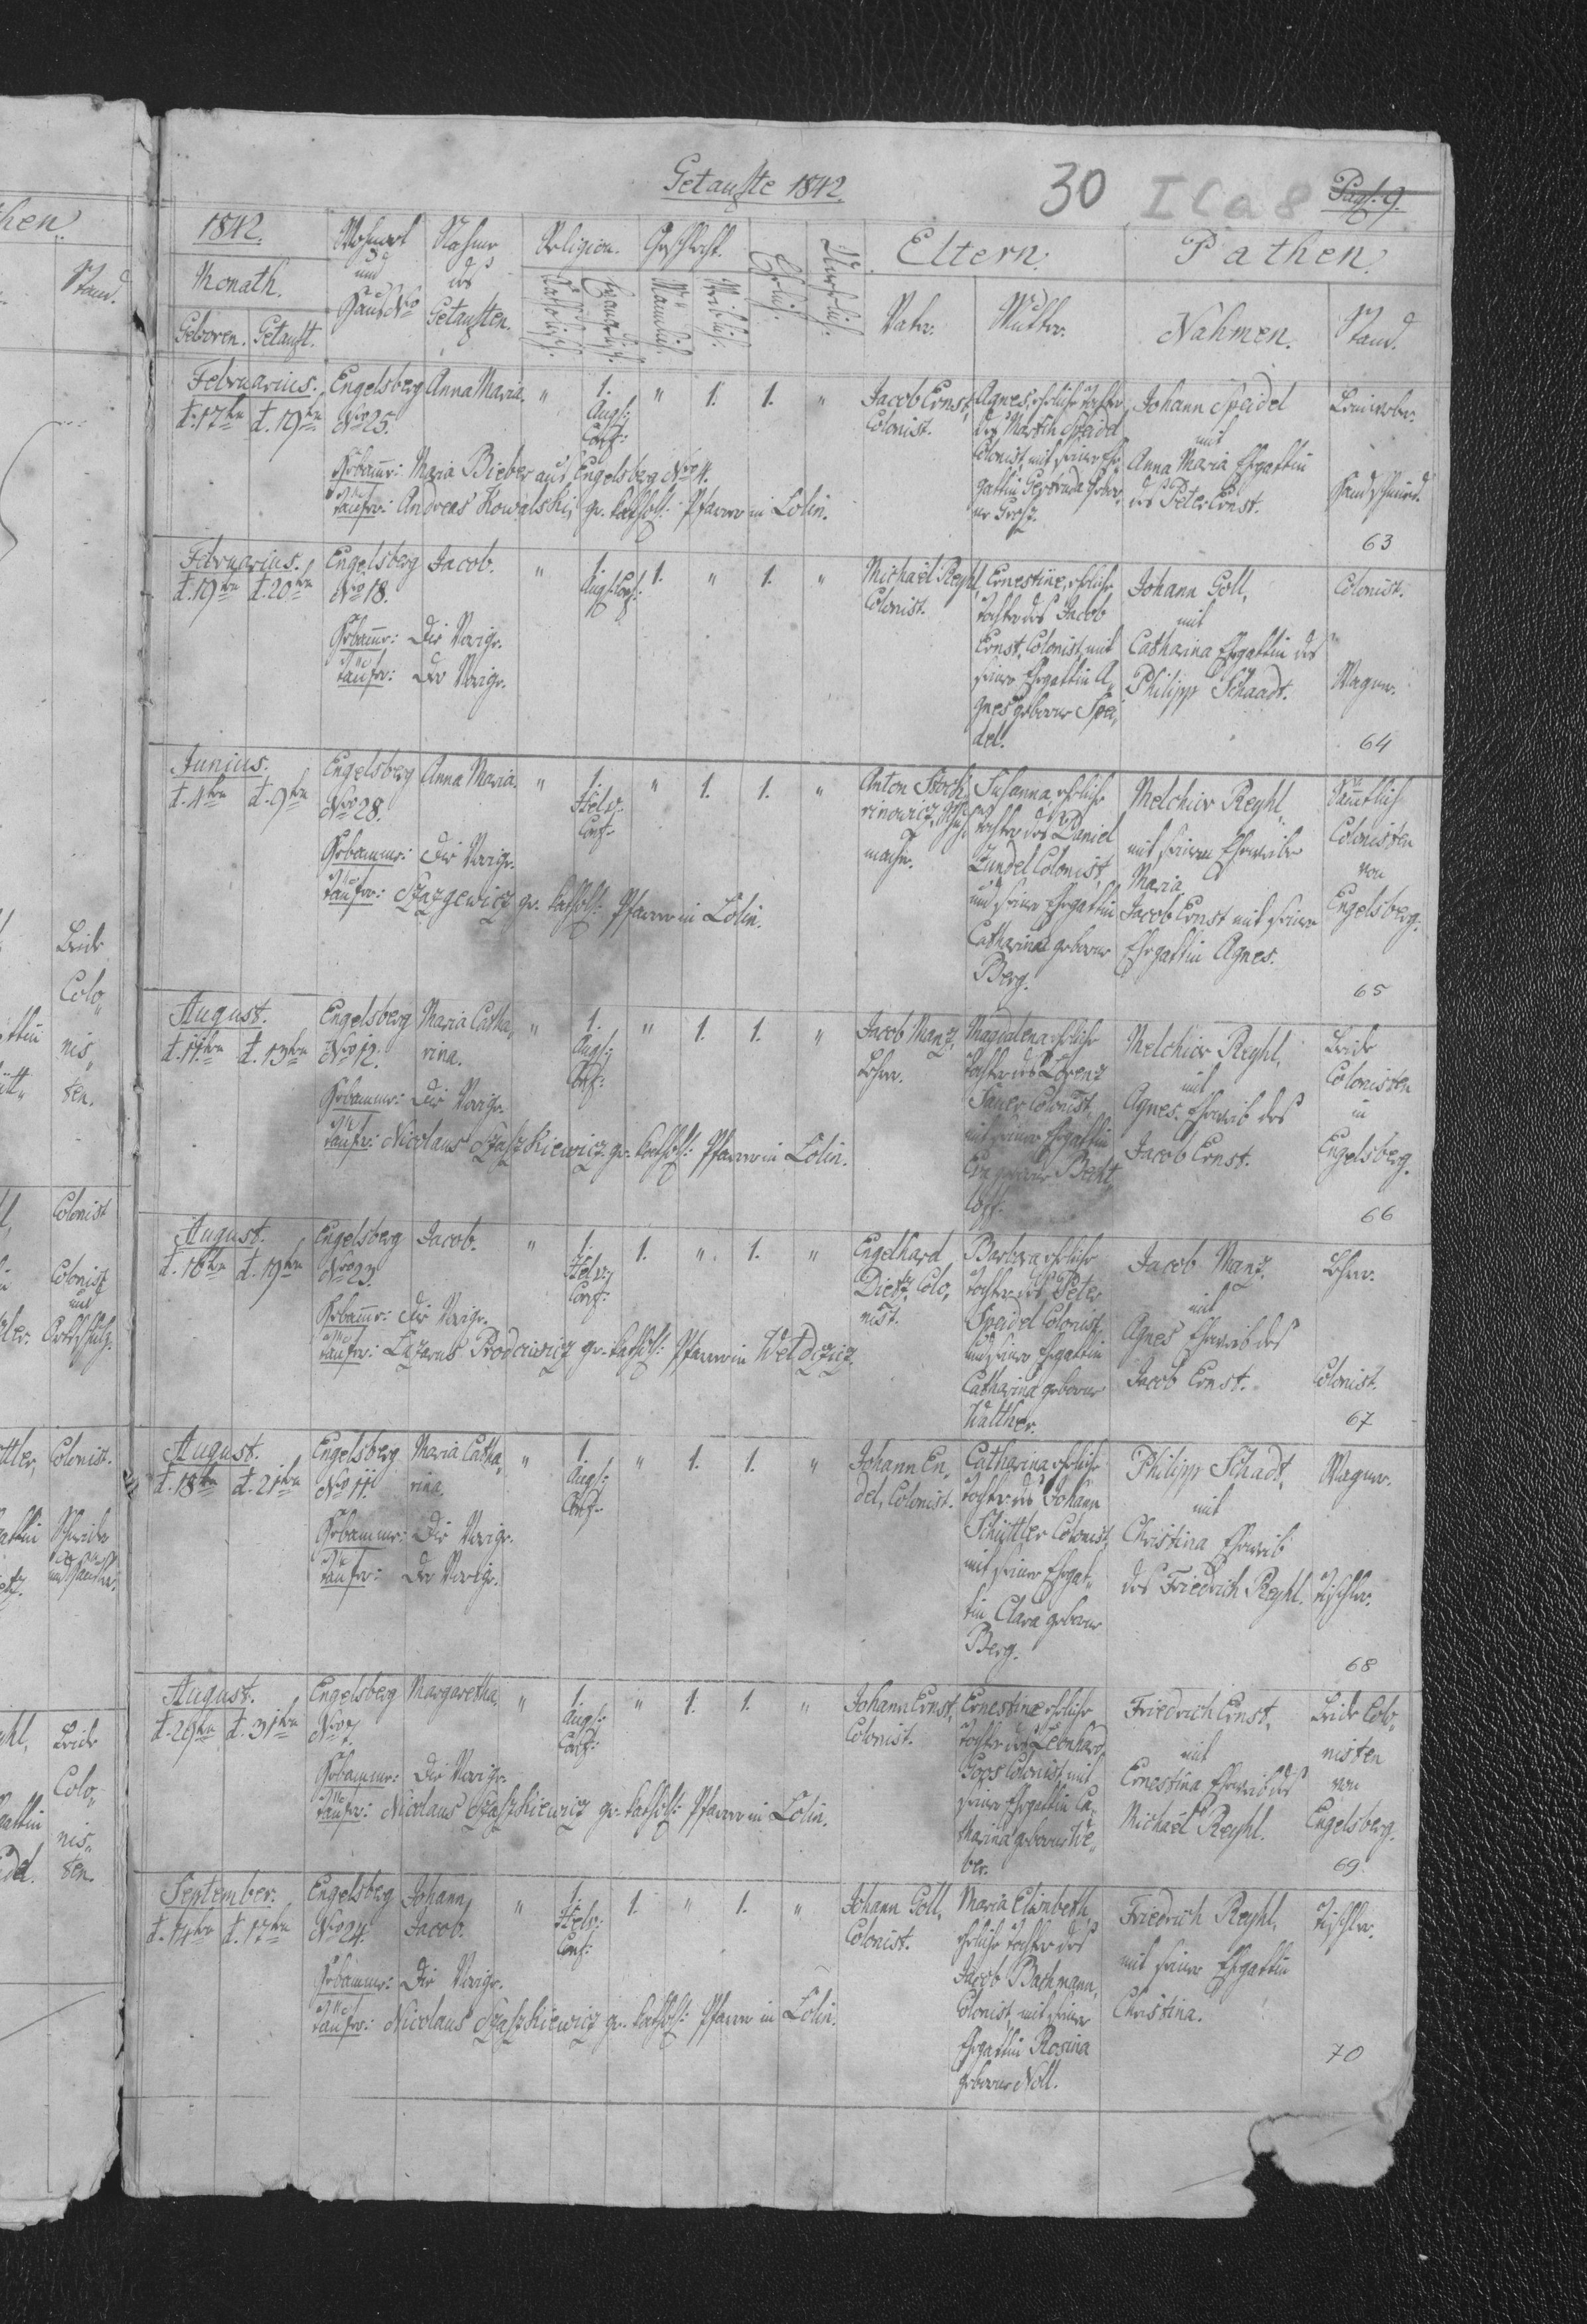 Getaufte 1842.
30 I C a 8
Pag. 9.
1842.
Wohnort
und
Haus Nro
Nahme
des
Getauften.
Religion.
Geschlecht.
Ehelich.
Unehelich.
Eltern.
Pathen.
Monath.
Geboren. Getauft.
Katholisch.
Evangelisch.
Männlich.
Weiblich.
Vater.
Mutter.
Nahmen.
Stand.
Februarius.
d. 17ten d. 19ten
Engelsberg
Nro 25.
Anna Maria.
" 1. " 1. 1. "
Augs:
Conf:
Jacob Ernst,
Colonist.
Agnes, eheliche Tochter
des Martin Speidel
Colonist, mit seiner Ehe
gattin Gertruda gebor
ne
Johann Speidel
mit
Anna Maria Ehegattin
des Peter Ernst.
Hebamme: Maria Bieber aus Engelsberg Nro 4.
Taufer: Andreas Kowalski, gr. kathol: Pfarrer in Lolin.
63
Februarius.
d. 19ten d. 20ten
Engelsberg
Nro 18.
Jacob.
" 1. 1. " 1. "
Augs. Conf:
Michaël Reyhl,
Colonist.
Ernestine, eheliche
Tochter des Jacob
Ernst, Colonist, mit
seiner Ehegattin A,
gnes geborne Spei,
del.
Johann Goll,
mit
Catharina Ehegattin des
Philipp Schaadt.
Colonist.
"
Wagner.
Hebamme: Die Vorige.
Taufer: Der Vorige.
64
Junius.
d. 4ten d. 9ten
Engelsberg
Nro 28.
Anna Maria.
" 1. " 1. 1. "
Helv:
Conf:
Anton
macher.
Susanna eheliche
Tochter des Daniel
Zundel Colonist,
und seiner Ehegattin
Catharina geborne
Berg.
Melchior Reyhl,
mit seinem Eheweibe
Maria
Jacob Ernst mit seiner
Ehegattin Agnes.
Sämtlich
Colonisten
von
Engelsberg.
Hebamme: Die Vorige.
Taufer: gr. kathol: Pfarrer in Lolin.
65
August.
d. 11ten d. 13ten
Engelsberg
Nro 12.
Maria Catha,
rina.
" 1. " 1. 1. "
Augs:
Conf:
Jacob Manz,
Lehrer.
Magdalena eheliche
Tochter des Lorenz
Colonist,
mit seiner Ehegattin
Eva geborne Becht,
loff.
Melchior Reyhl,
mit
Agnes Eheweib des
Jacob Ernst.
Beide
Colonisten
in
Engelsberg.
Hebamme: Die Vorige.
Taufer: Nicolaus Szaszkiewicz gr. kathol: Pfarrer in Lolin.
66
August.
d. 16ten d. 19ten
Engelsberg
Nro 23.
Jacob.
" 1. 1. " 1. "
Helv:
Conf:
Engelhard
Dietz, Colo,
nist.
Barbara eheliche
Tochter des Peter
Speidel Colonist,
und seiner Ehegattin
Catharina geborne
Walther.
Jacob Manz.
mit
Agnes Eheweib des
Jacob Ernst.
Lehrer.
Colonist.
Hebamme: Die Vorige.
Taufer: Lazarus gr. kathol: Pfarrer in Weldzicz.
67
August.
d. 18ten d. 21ten
Engelsberg
Nro 11.
Maria Catha,
rina.
" 1. " 1. 1. "
Augs:
Conf:
Johann En,
del, Colonist.
Catharina eheliche
Tochter des Johann
Schüttler Colonist,
mit seiner Ehegat,
tin Clara geborne
Berg.
Philipp Schadt,
mit
Christina Eheweib
des Friedrich Reyhl.
Wagner.
Tischler.
Hebamme: Die Vorige.
Taufer: Der Vorige.
68
August.
d. 29ten d. 31ten
Engelsberg
Nro 7.
Margaretha,
" 1. " 1. 1. "
Augs:
Conf:
Johann Ernst,
Colonist.
Ernestine eheliche
Tochter des Leonhard
Goos Colonist mit
seiner Ehegattin Ca,
tharina geborne We,
ber.
Friedrich Ernst,
mit
Ernestina Eheweib des
Michaël Reyhl.
Beide Colo,
nisten
von
Engelsberg.
Hebamme: Die Vorige.
Taufer: Nicolaus Szaszkiewicz gr. kathol: Pfarrer in Lolin.
69
September.
d. 14ten d. 17ten
Engelsberg
Nro 24.
Johann
Jacob.
" 1. 1. " 1. "
Helv:
Conf:
Johann Goll,
Colonist.
Maria Elisabeth
eheliche Tochter des
Jacob Bachmann,
Colonist, mit seiner
Ehegattin Rosina
geborne Noll.
Friedrich Reyhl,
mit seiner Ehegattin
Christina.
Tischler.
Hebamme: Die Vorige.
Taufer: Nicolaus Szaszkiewicz gr. kathol: Pfarrer in Lolin.
70